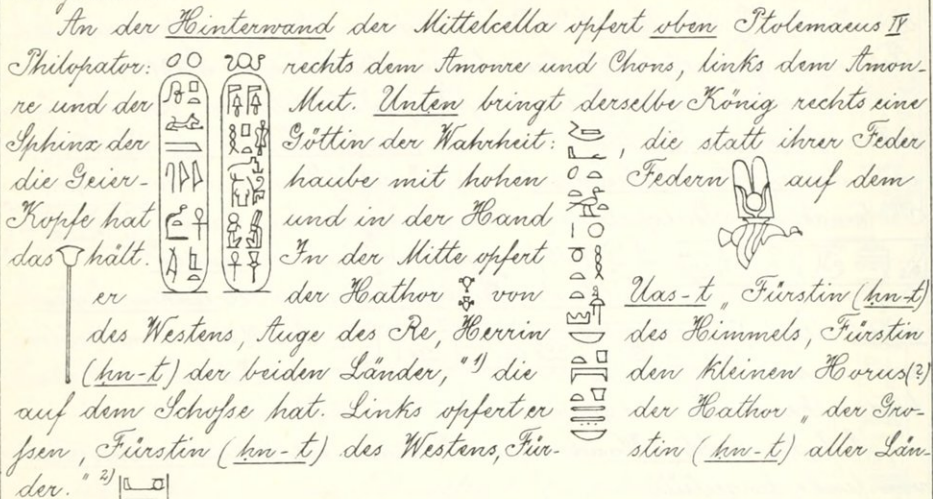 An der Hinterwand der Mittelcella opfert oben Ptolemaeus IV
Philopator: rechts dem Amonre und Chons, links dem Amon-
re und der Mut. Unten bringt derselbe König rechts eine
Sphinx der Göttin der Wahrheit: , die statt ihrer Feder
die Geier- haube mit hohen Federn auf dem
Kopfe hat und in der Hand
das hält. In der Mitte opfert
er der Hathor von Uas-t „Fürstin (ḥn-t)
des Westens, Auge des Re, Herrin des Himmels, Fürstin
(ḥn-t) der beiden Länder," 1) die den kleinen Horus(?)
auf dem Schoße hat. Links opfert er der Hathor „der Gro-
ßen, Fürstin (ḥn-t) des Westens, Für- stin (ḥn-t) aller Län-
der." 2)